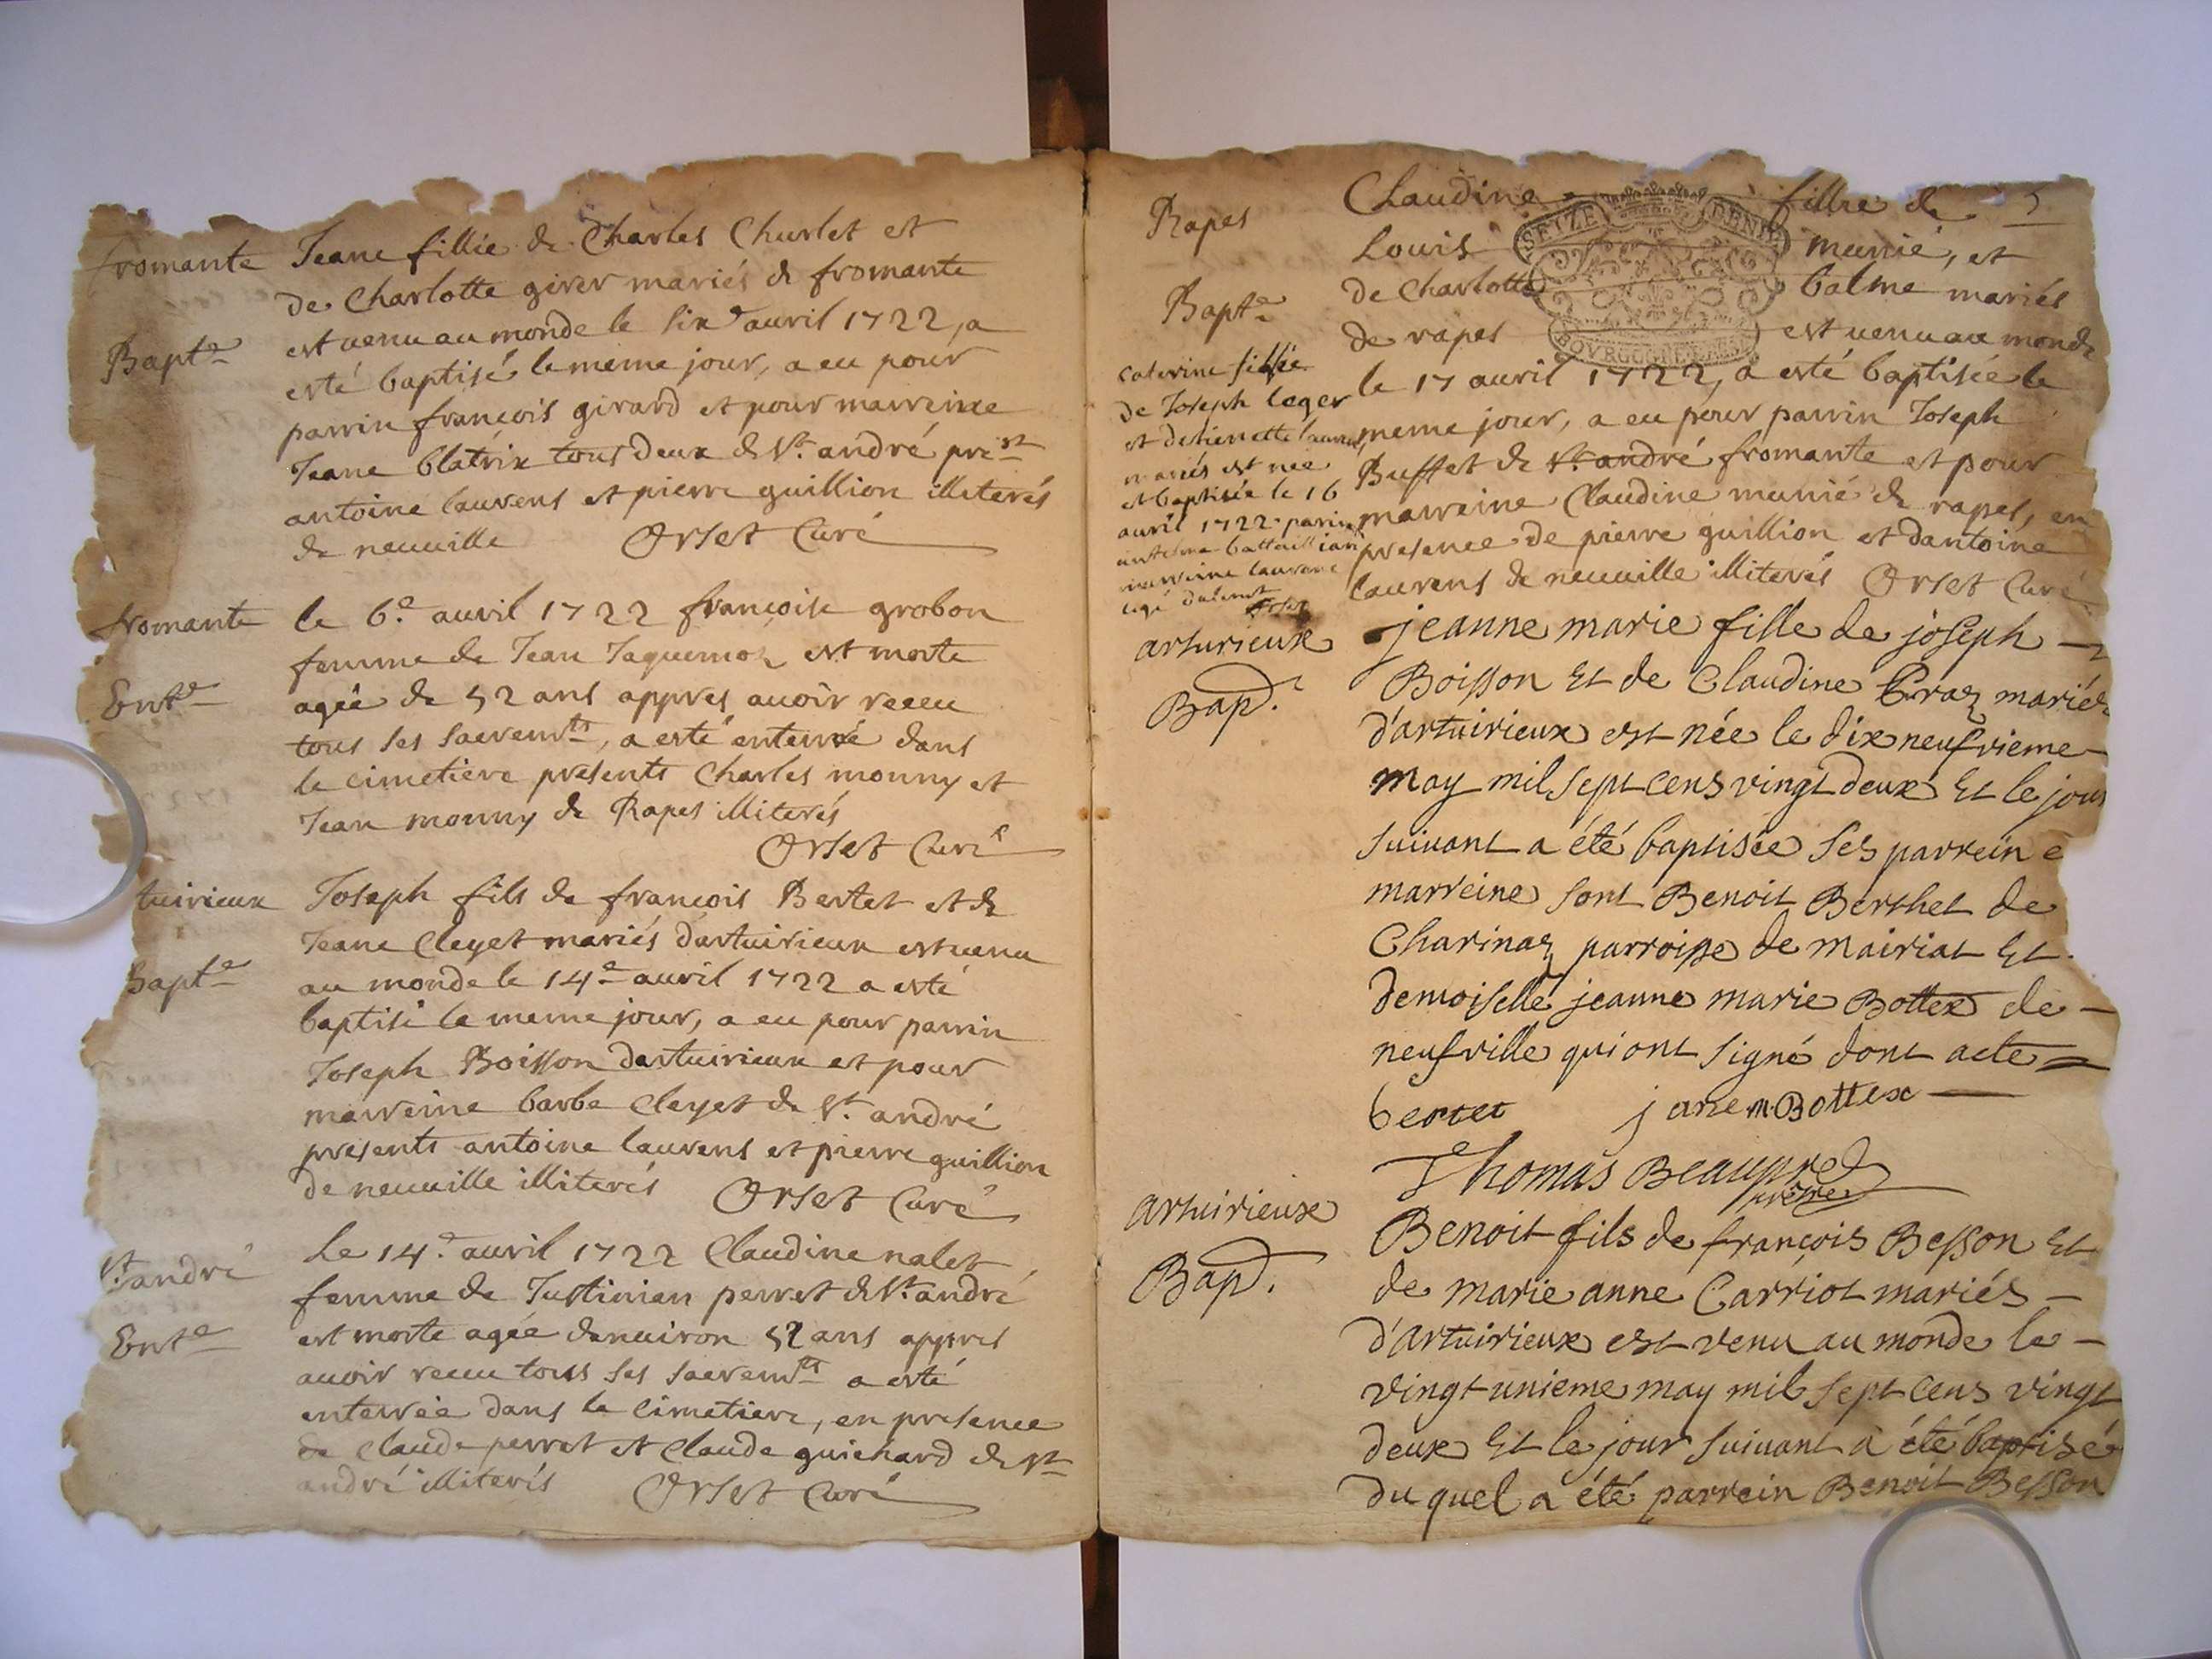 fromante
Jeane fillie de Charles Churlet et
de Charlotte girer mariés de fromante
Bapte
est venu au monde le six auril 1722, a
esté baptisé le meme jour, a eu pour
parrin françois girard et pour marreine
Jeane blatrix tous deux de St. andré prest
antoine laurens et pierre guillion illiterés
de neuuille Orset Curé
fromante
le 6e auril 1722 françoise grobon
femme de Jean Jaquemoz est morte
Ente
agée de 52 ans appres auoir receu
tous ses sacremts, a esté enterré dans
le cimetiere presents Charles monny et
Jean monny de Rapes illiterés
Orset Curé
tuirieux
Joseph fils de françois Bertet et de
Jeane Cleyet mariés dartuirieux est uenu
Bapte
au monde le 14e auril 1722 a esté
baptisé le meme jour, a eu pour parrin
Joseph Boisson dartuirieux et pour
marreine barbe Cleyet de St. andré
presents antoine laurens et pierre guillion
de neuuille illiterés Orset Curé
St. andré
Le 14e auril 1722 Claudine nalet
femme de Justinien perret de St. andré
Ente
est morte agée denuiron 52 ans appres
auoir receu touss ses sacremts a esté
enterrée dans le cimetiere, en presence
de Claude perret et Claude guichard de St
andré illiterés Orset Curé
5
Rapes
Claudine fillie de
Louis munié, et
Bapte
de Charlotte balme mariés
de rapes est uenu au monde
SEIZE DENIE
BOVRGOGNE
le 17 auril 1722, a esté baptisée le
meme jour, a eu pour parrin Joseph
Buffet de St. andré fromante et pour
marreine Claudine munié de rapes, en
presence de pierre guillion et dantoine
laurens de neuuille illiterés Orset Curé
caterine fillie
de Joseph leger
et de
mariés est née
et baptisée le 16
auril 1722 parin
marreine
Orset
arturieux
jeanne marie fille de joseph
Bap.
Boisson Et de Claudine Craz mariés
d'artuirieux est née le dixneufvieme
may mil sept cens vingt deux Et le jour
suivant a été baptisée ses parrein e
marreine sont Benoit Berthet de
Charinaz parroisse de mairiat Et
demoiselle jeanne marie Bottex de
neufville qui ont signé dont acte
bertet jane m. Bottex
Thomas Beaupred
prêtre
artuirieux
Benoit fils de françois Besson Et
Bap.
de marie anne Carriot mariés
d'artuirieux est venu au monde le
vingt unieme may mil sept cens vingt
deux Et le jour suivant a été baptisé
du quel a été parrein Benoit Besson